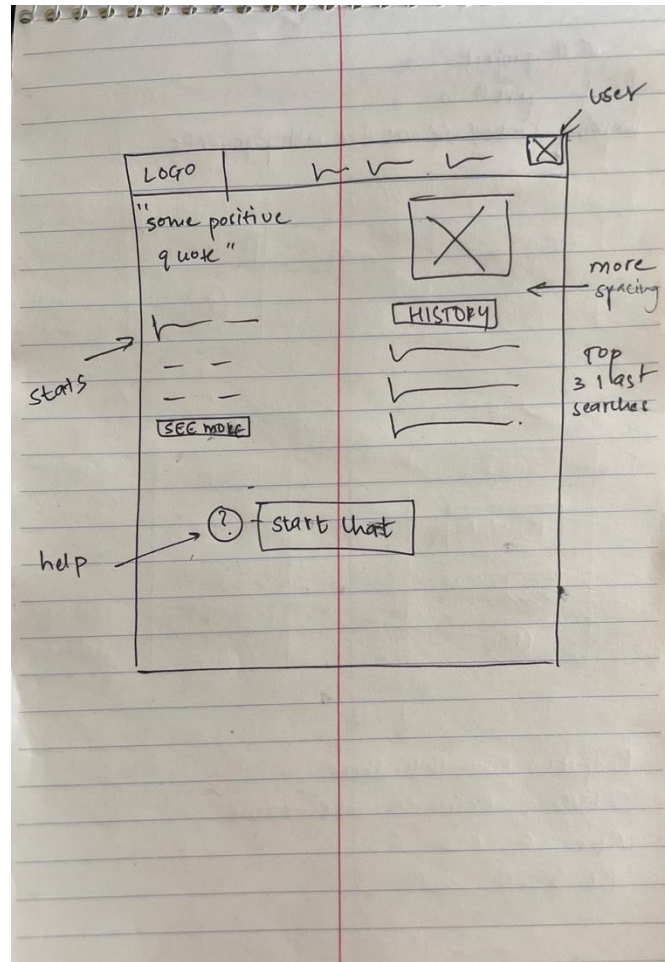 user
LOGO
"some positive
quote"
more
spacing
HISTORY
stats
Top
3 last
searches
SEE MORE
? start chat
help